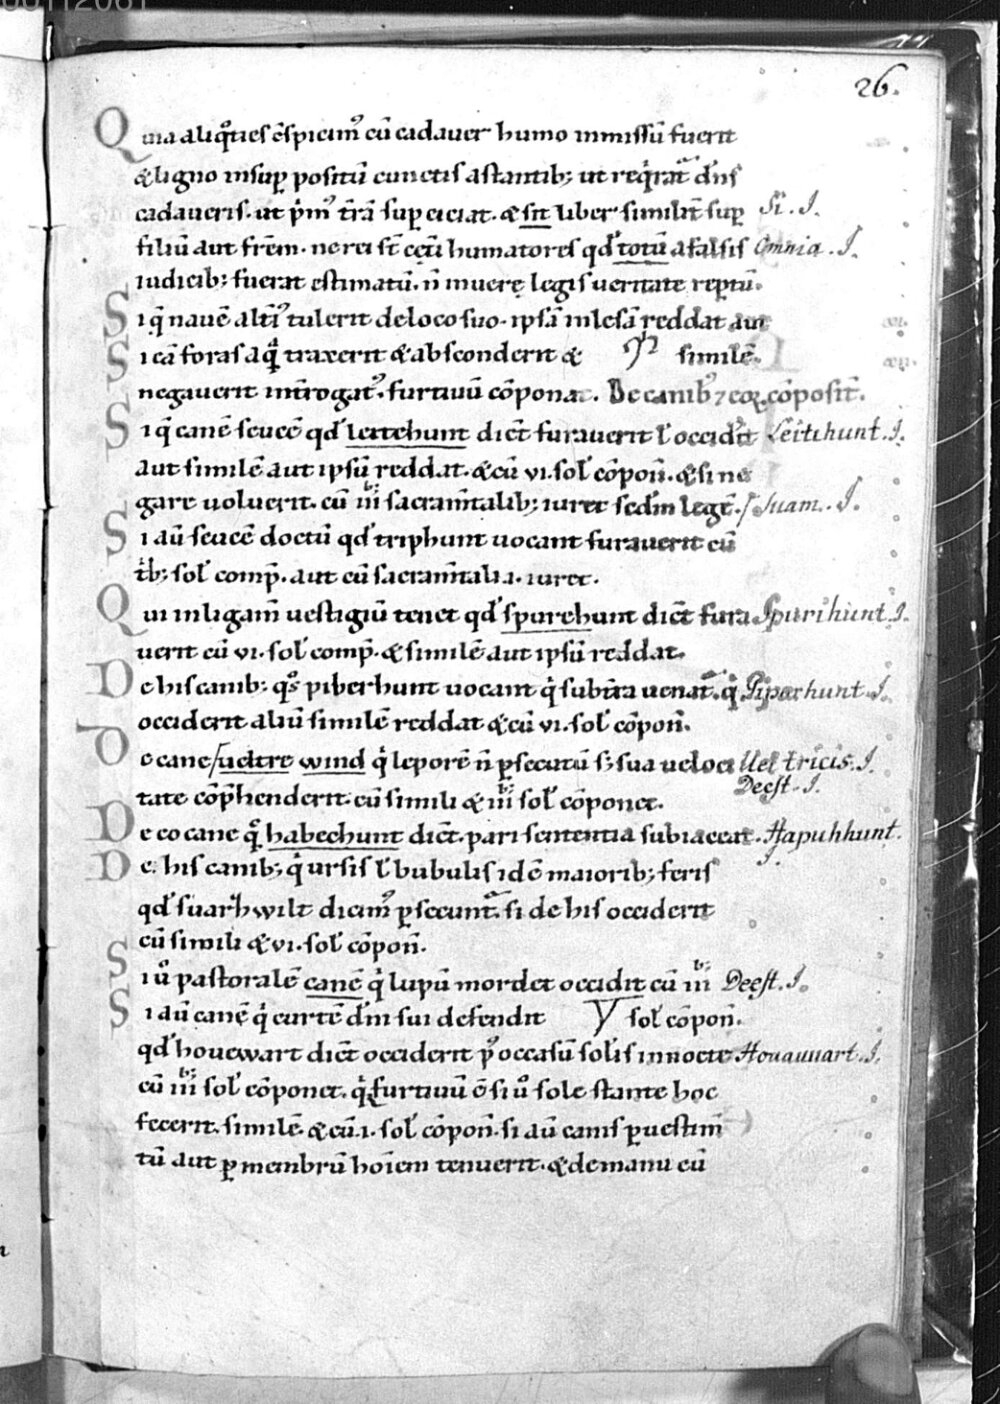 26.
Quia aliq̊ties c̄spicim᾿ cū cadauer humo inmissū fuerit
& ligno insuꝑ positū cunctis astantib; ut reqͥrat dn̄s
cadaueris. ut pͥm᾿ t̄rā suꝑ eiciat. & sit liber similit̄ suꝑ Si. J.
filiū aut fr̄em. ne rei st̄ cęt̄i humatores qd̕ totū a falsis Omnia. J.
iudicib; fuerat estimatū. n̄ inuere legis ueritate reptū.
Si qͥ nauē alt̄i᾿ tulerit de loco suo. ipsā inlesā reddat aut
Si eā foras aqͣ̄ traxerit & absconderit & similē.
negauerit int̄rogat᾿. furtiuū cōponat. De canib᾿ ⁊ eoꝝ cōposit̄.
Si qͥ canē seucē qd̕ leitehunt dic̄t furauerit l̕ occidit Leitihunt. J.
aut similē aut ipsū reddat. & cū vi. sol̕ cōpon̄. & si ne
gare uoluerit. cū iii sacram̄talib; iuret sed̄m legē. / Suam. J.
Si aū seucē doctū qd̕ triphunt uocant furauerit cū
t̄b; sol̕ comp̄. aut cū sacram̄tali .i. iuret.
Qui in ligam̄ uestigiū tenet qd̕ spurehunt dic̄t fura Spurihunt J.
uerit cū vi. sol̕ comp̄. & similē aut ipsū reddat.
De his canib; q̊s piberhunt uocant qͥ sub t̄ra uenat̄. qͥ Piparhunt. J.
occiderit aliū similē reddat & cū vi. sol̕ cōpon̄.
De cane / ueltre wind qͥ leporē n̄ ꝑsecutū s; sua ueloci Ueltricis. J.
Deest. J.
tate cōp̄henderit. cū simili & iii sol̕ cōponet.
De eo cane q̄ habechunt dic̄t. pari sententia subiaceat. Hapuhhunt.
J.
De his canib; qͥ ursis l̕ bubulis id ē maiorib; feris
qd̕ suarhwilt dicim᾿ ꝑsecunt̄. si de his occiderit
cū simili & vi. sol̕ cōpon̄.
Si u̕ pastoralē canē qͥ lupū mordet occidit cū iii Deest. J.
Si aū canē qͥ curtē dn̄i sui defendit sol̕ cōpon̄.
qd̕ houewart dic̄t occiderit p̕ occasū solis in nocte Houauuart. J.
cū iii sol̕ cōponet. qͥ furtiuū ē. si u̕ sole stante hoc
fecerit. similē. & cū .i. sol̕ cōpon̄. si aū canis ꝑ uestim̄
tū aut ꝑ membrū hoīem tenuerit. & de manu cū